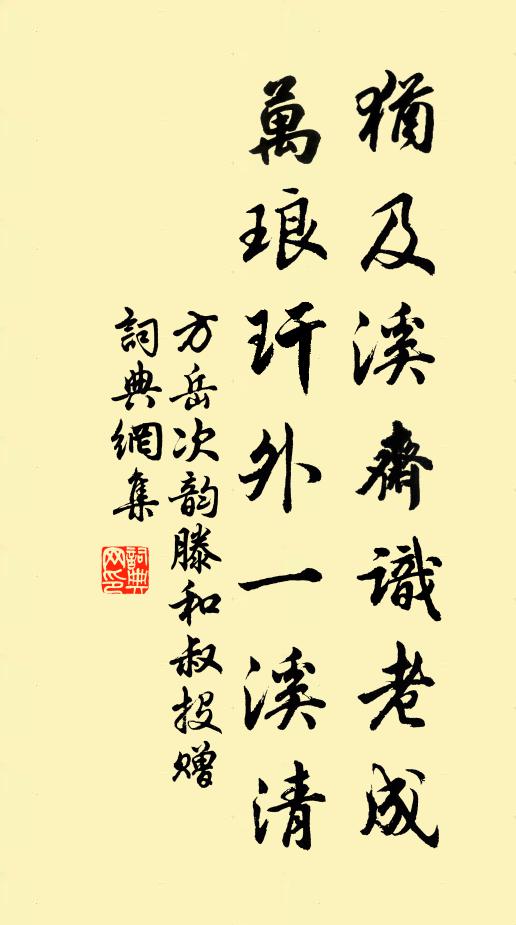 猶及溪齋識老成
萬琅玕外一溪清
方岳次韵滕和叔投贈
詞典網集
詞典网印